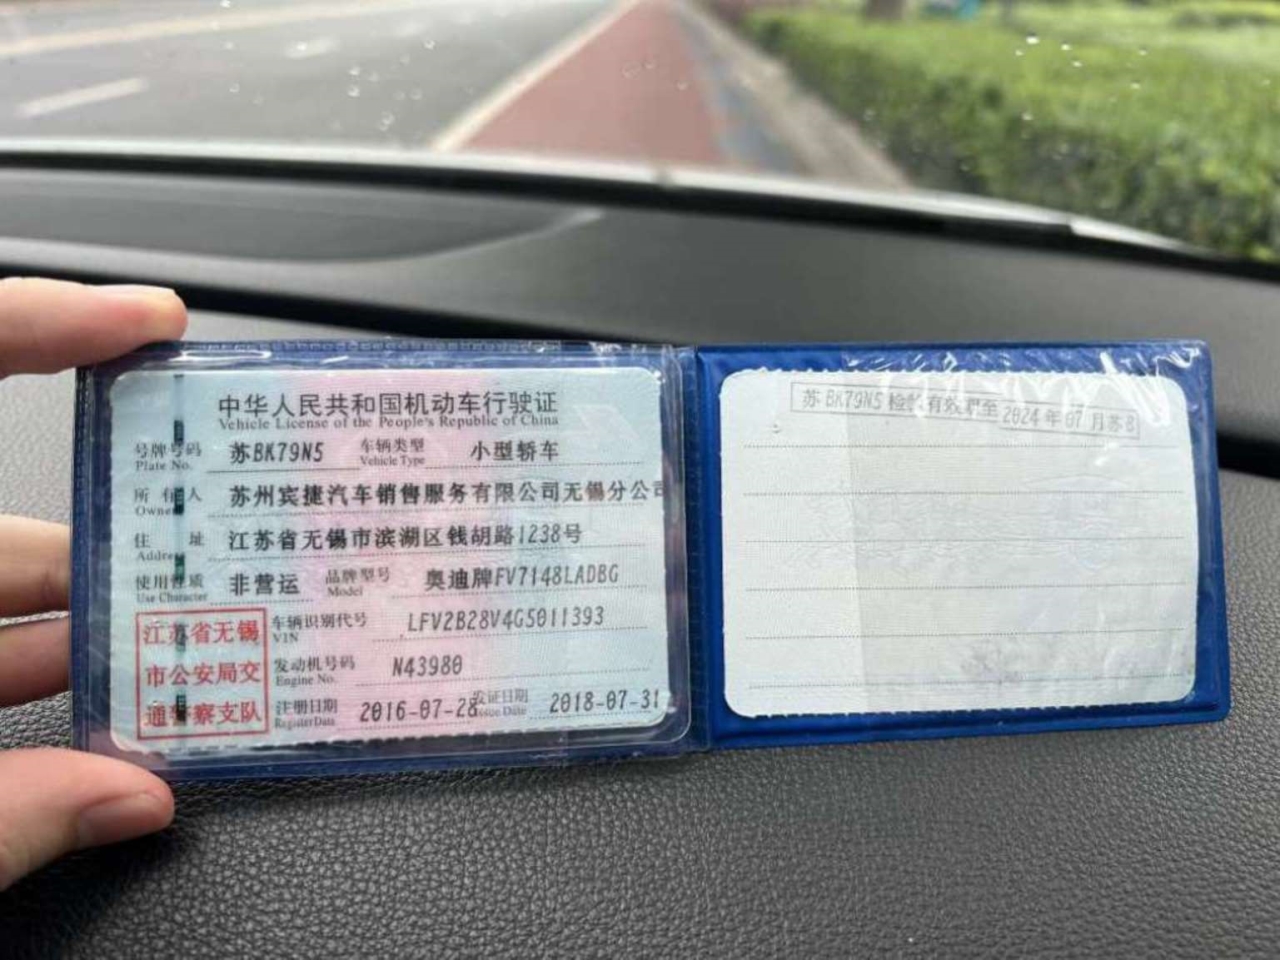 中华人民共和国机动车行驶证
Vehicle License of the People's Republic of China
号牌号码 苏BK79N5 车辆类型 小型轿车
Plate No. Vehicle Type
所有人 苏州宾捷汽车销售服务有限公司无锡分公司
Owner
住址 江苏省无锡市滨湖区钱胡路1238号
Address
使用性质 非营运 品牌型号 奥迪牌FV7148LADBG
Use Character Model
江苏省无锡
市公安局交
通警察支队
车辆识别代号 LFV2B28V4G5011393
VIN
发动机号码 N43980
Engine No.
注册日期 2016-07-28 发证日期 2018-07-31
Register Data Issue Date
苏BK79N5 检验有效期至 2024年07月苏B